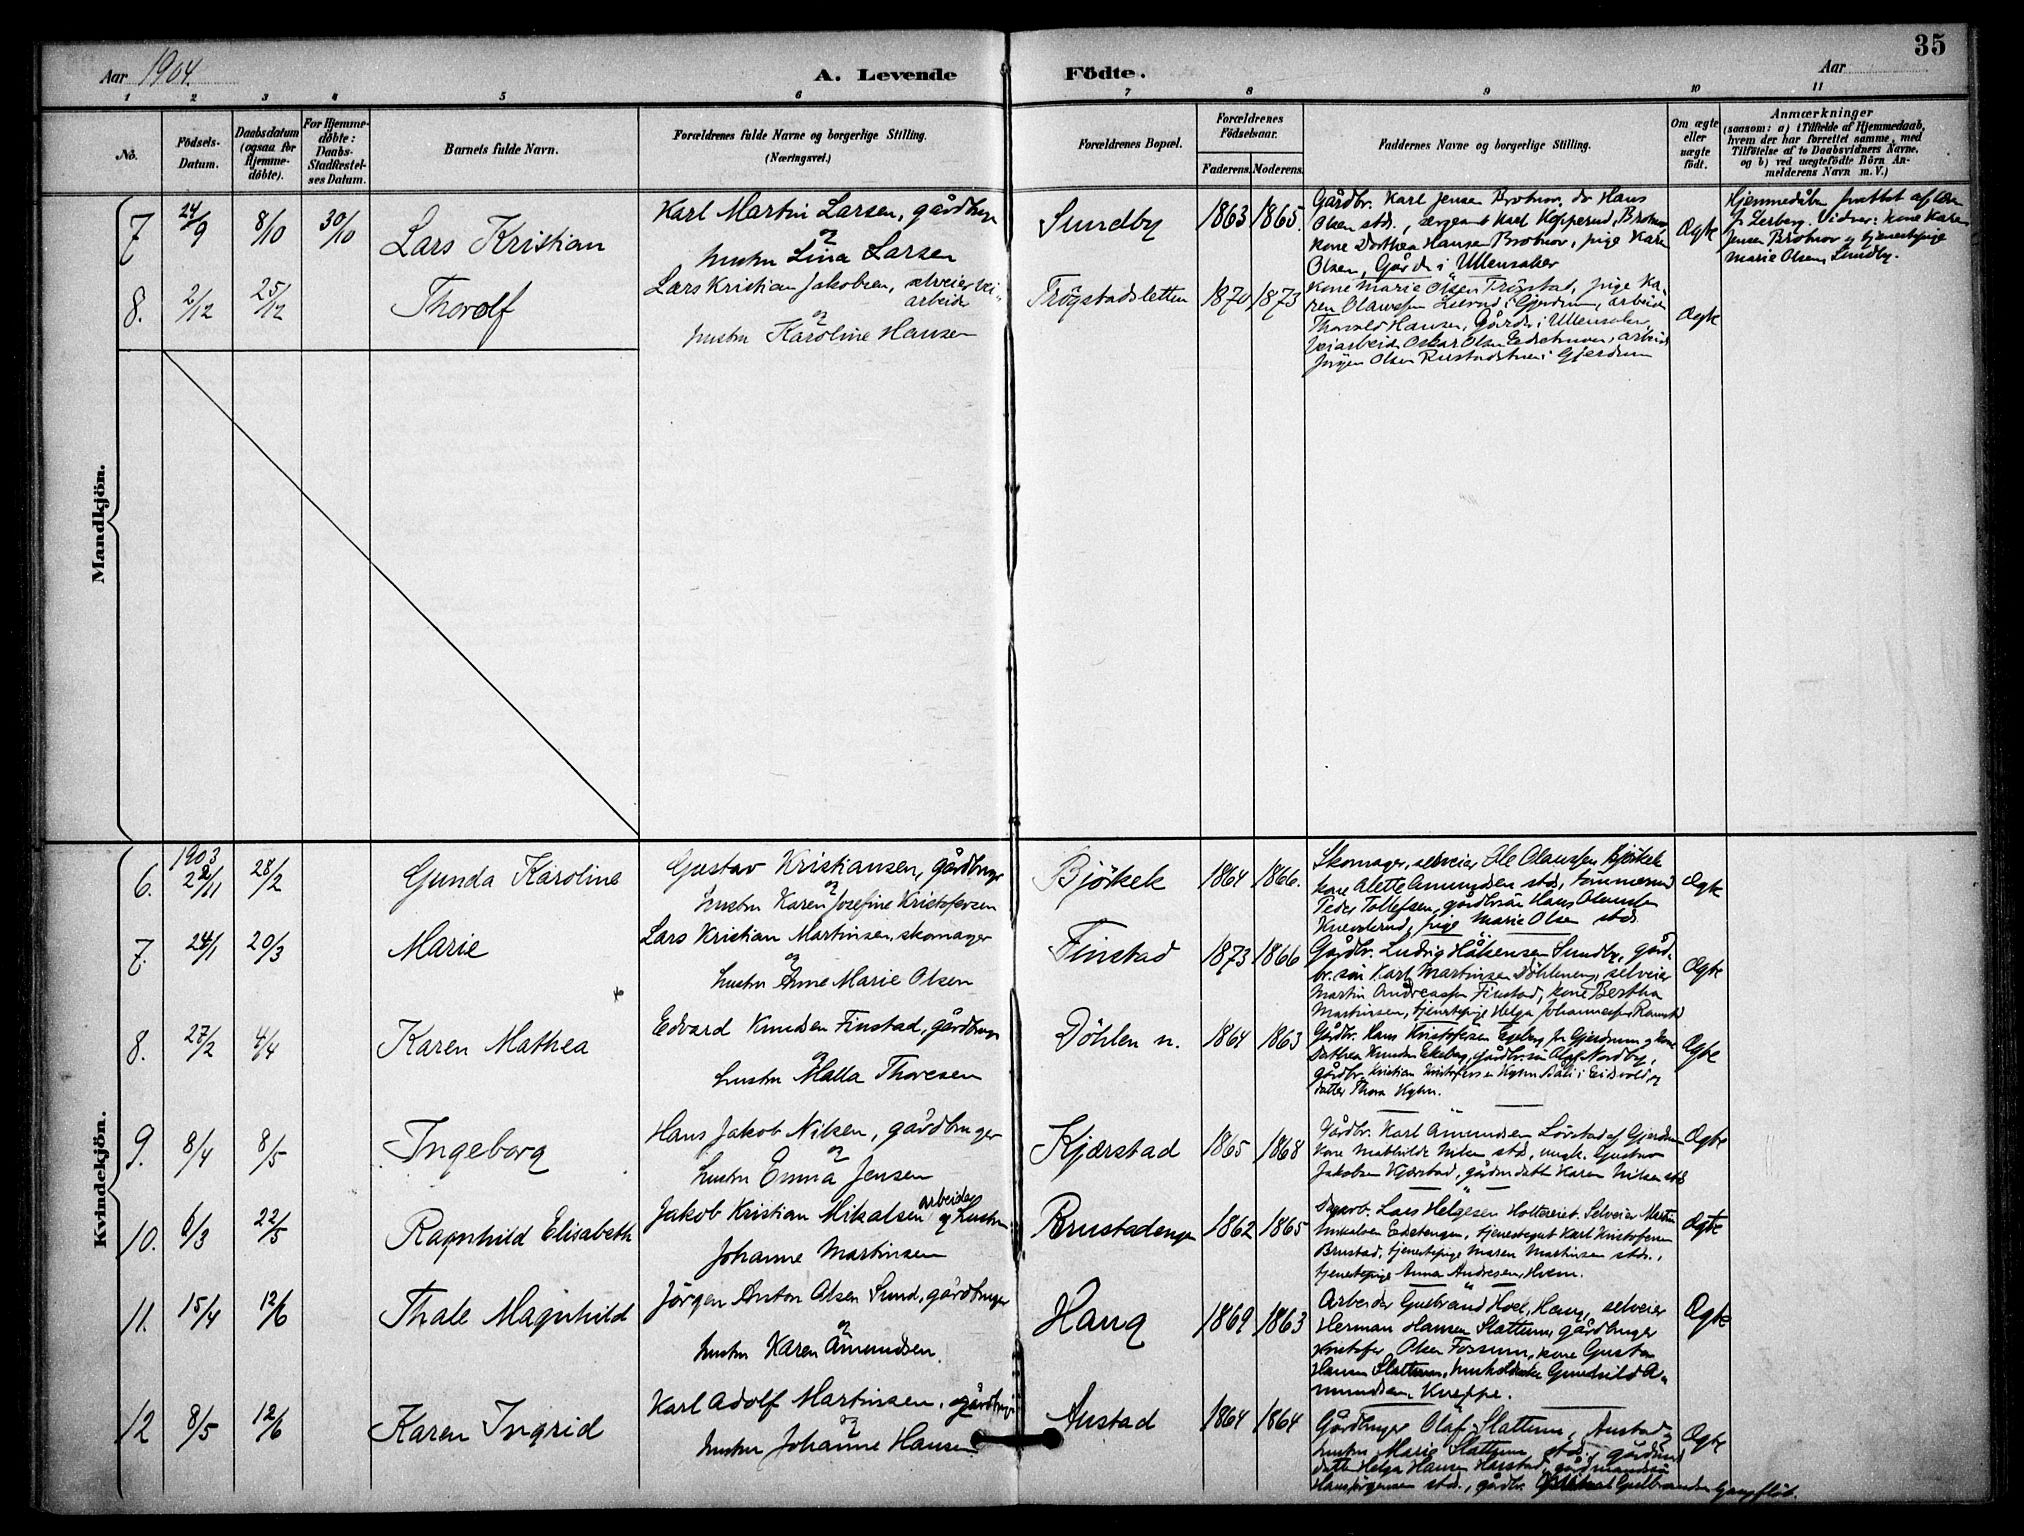 35
Aar 1904.
A. Levende Födte.
Aar
1 2 3 4 5 6 7 8 9 10 11
No.
Födsels-Datum.
Daabsdatum (ogsaa for Hjemme-döbte).
For Hjemme-döbte: Daabs-Stadfæstel-ses Datum.
Barnets fulde Navn.
Forældrenes fulde Navne og borgerlige Stilling.
(Næringsvei.)
Forældrenes Bopæl.
Forældrenes Födselsaar.
Faderens. Moderens.
Faddernes Navne og borgerlige Stilling.
Om ægte eller uægte födt.
Anmærkninger
(saasom: a) i Tilfælde af Hjemmedaab,
hvem der har forrettet samme, med
Tilföielse af to Daabsvidners Navne.
og b) ved uægtefödte Börn An-
melderens Navn m. V.)
Mandkjön.
7 24/9 8/10 30/10 Lars Kristian
Karl Martin Larsen, gårdbruger
og
hustru Lina Larsen
Sundby 1863 1865.
Gårdbr. Karl Jensen Brotnov, do Hans
Olsen stds.,
kone Dorthea Hansen Brotnov, pige Karen
Olsen, Gårder i Ullensaker
Ægte
Hjemmedåben forrettet af
Vidner: kone Karen
Jensen Brotnov og tjenestepige
Marie Olsen, Sundby.
8. 2/12 25/12 Thorolf
Lars Kristian Jakobsen, selveier vei-
arbeider
og
hustru Karoline Hansen
Trögstadsletten 1870 1873
Kone Marie Olsen Trögstad, pige Ka-
ren Olaussen i Gjerdrum, arbeider
Thorvald Hansen, Gårder i Ullensaker,
veiarbeider Oskar Olsen, arbeider
Jörgen Olsen Rustadstuen i Gjerdrum
Ægte
Kvindekjön.
1903
6. 22/11 28/2 Gunda Karoline
Gustav Kristiansen, gårdbruger
og
hustru Karen Josefine Kristofersen
Björkek 1864 1866.
Skomager, selveier Ole Olaussen Björkek
kone Alette Amundsen stds, tömmermand
Peder Tollefsen, gårdbr.sön Hans Olaussen
pige Marie Olsen stds
Ægte
7. 24/1 20/3 Marie
Lars Kristian Martinsen, skomager
og
hustru Anne Marie Olsen
Finstad 1873 1866
Gårdbr. Ludvig Håkensen Sundby, gård-
br. sön Karl Martinsen Döhlen, selveier
Martin Andreassen Finstad, kone Bertha
Martinsen, tjenestepige Helga Johannessen
Ægte
8. 27/2 4/4 Karen Mathea
Edvard Knudsen Finstad, gårdbruger
og
hustru Malla Thoresen
Döhlen n. 1864 1863
Gårdbr. Hans Kristofersen Egeberg fr. Gjerdrum og kone
Dorthea Knudsen Ekeberg, gårdbr. sön Olaf Nordby,
gårdbr. Kristian Kristofersen i Eidsvold, og
datter Thora
Ægte
9. 8/4 8/5 Ingeborg
Hans Jakob Nilsen, gårdbruger
og
hustru Emma Jensen
Kjærstad 1865 1868
Gårdbr. Karl Amundsen Lörstad af Gjerdrum
kone Mathilde Nilsen stds, ungk. Gustav
Jakobsen Kjærstad, gårdm.datter Karen Nilsen stds
Ægte
10. 6/3 22/5 Ragnhild Elisabeth
Jakob Kristian Mikalsen arbeider og hustru
Johanne Martinsen
Brustadengen 1862 1865
Lars Helgesen Holteeriet. Selveier Martin
Mikalsen Edstengen, tjenestegut Karl Kristofersen
Brustad, tjenestepige Maren Martinsen stds.,
tjenestepige Anna Andresen, Hvam.
Ægte
11. 15/4 12/6 Thale Magnhild
Jörgen Anton Olsen Sund, gårdbruger
og
hustru Karen Amundsen.
Haug 1869 1863
Arbeider Gudbrand Hoel, Haug, selveier
Herman Hansen Slattum, gårdbruger
Kristofer Olsen Fossum, kone Gusta
Hansen Slattum, husholderske Gunhild A-
mundsen, Kneppe.
Ægte
12 8/5 12/6 Karen Ingrid
Karl Adolf Martinsen, gårdbruger
og
hustru Johanne Hansen
Austad 1864 1864
Gårdbruger Olaf Slattum, Austad og
hustru Marie Slattum, stds., gårdm.
datter Helga Hansen Harstad, gårdmandssön
Hans Jörgensen stds., gårdbr. Gulbrandsen
Ægte